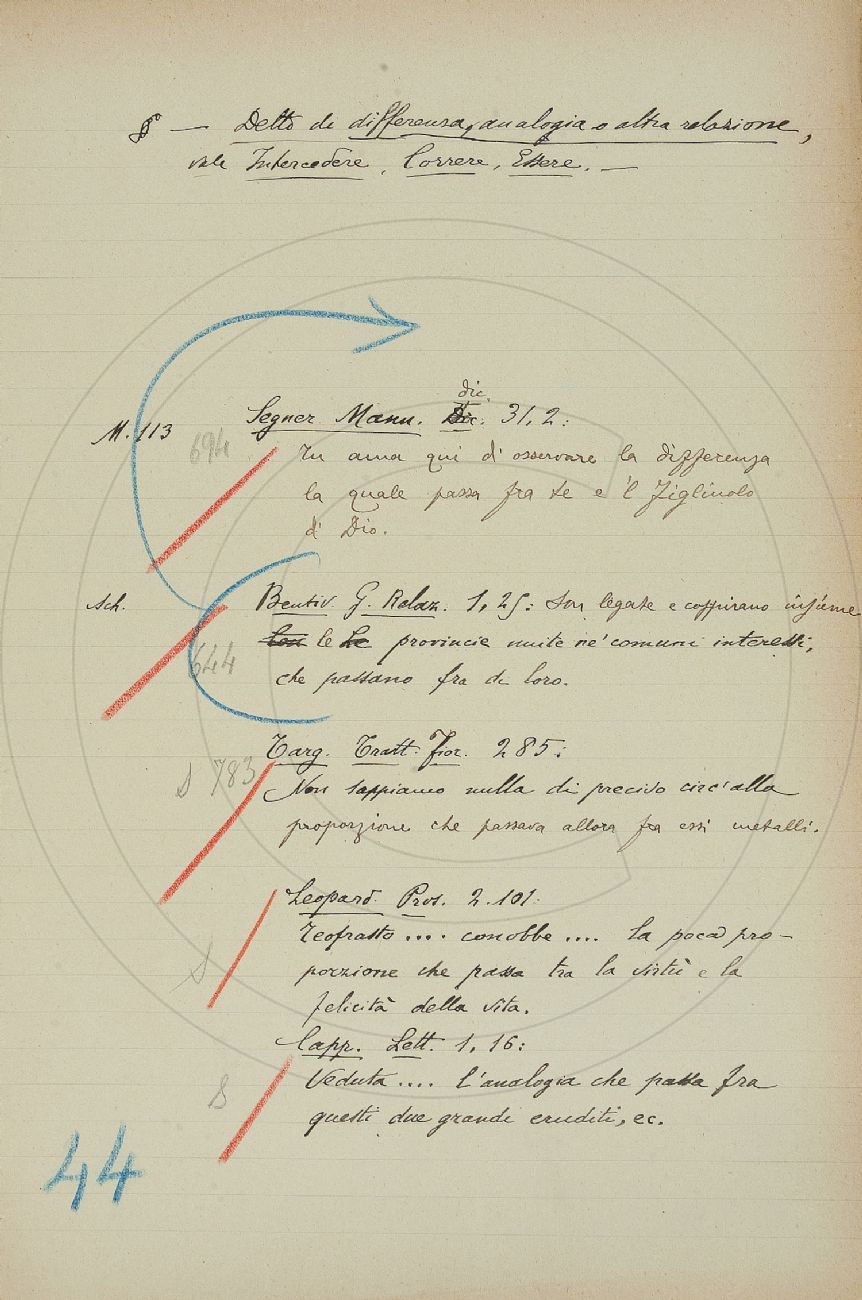 § — Detto di differenza, analogia o altra relazione,
vale Intercedere, Correre, Essere. —
dic.
M. 113 694 Segner. Mann. Dic. 31, 2:
Tu ama qui d'osservare la differenza
la quale passa fra te e 'l Figliuolo
di Dio.
Sch. Bentiv. G. Relaz. 1, 25: Son legate e cospirano insieme
644 le provincie unite ne' comuni interessi,
che passano fra di loro.
Targ. Tratt. Fior. 285:
S 783 Non sappiamo nulla di preciso circ' alla
proporzione che passava allora fra essi metalli.
Leopard. Pros. 2. 101:
Teofrasto .... conobbe .... la poca pro-
S porzione che passa tra la virtù e la
felicità della vita.
Capp. Lett. 1, 16:
S Veduta .... l'analogia che passa fra
questi due grandi eruditi, ec.
44